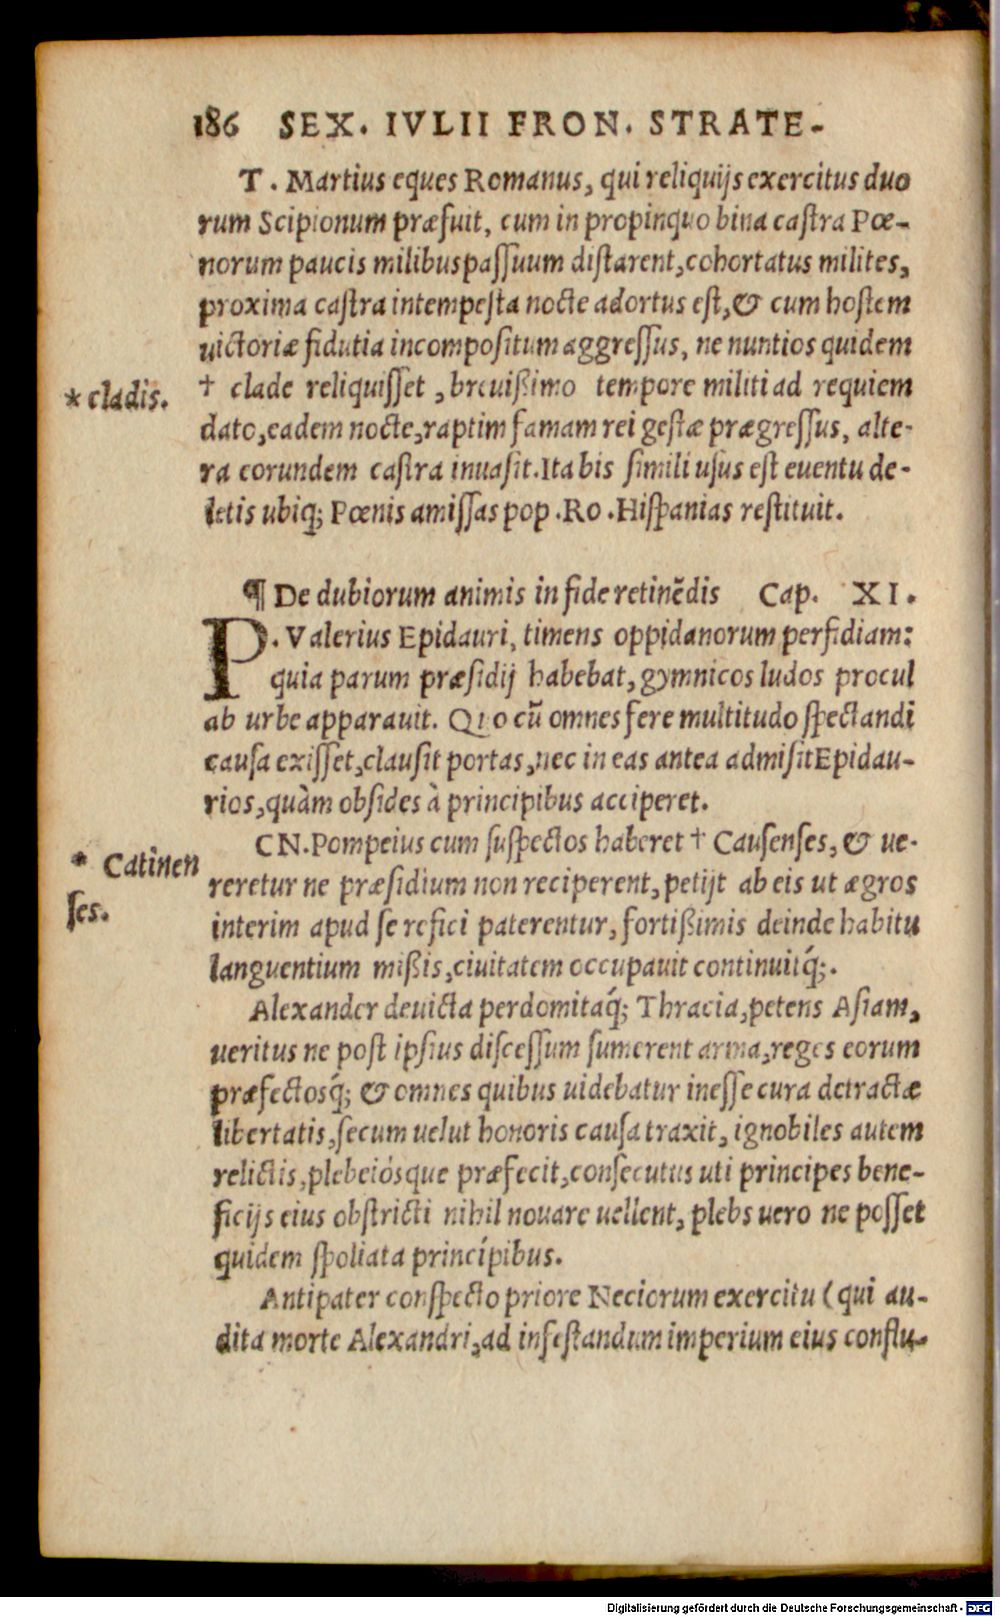 186 SEX. IVLII FRON. STRATE-
T. Martius eques Romanus, qui reliquijs exercitus duo
rum Scipionum præfuit, cum in propinquo bina castra Pœ-
norum paucis milibus passuum distarent, cohortatus milites,
proxima castra intempesta nocte adortus est, & cum hostem
uictoriæ fidutia incompositum aggressus, ne nuntios quidem
* cladis.
† clade reliquisset, breuißimo tempore militi ad requiem
dato, eadem nocte, raptim famam rei gestæ prægressus, alte-
ra eorundem castra inuasit. Ita bis simili usus est euentu de-
letis ubiq; Pœnis amissas pop. Ro. Hispanias restituit.
¶ De dubiorum animis in fide retinẽdis Cap. XI.
P. Valerius Epidauri, timens oppidanorum perfidiam:
quia parum præsidij habebat, gymnicos ludos procul
ab urbe apparauit. Quo cũ omnes fere multitudo spectandi
causa exisset, clausit portas, nec in eas antea admisit Epidau-
rios, quàm obsides à principibus acciperet.
CN. Pompeius cum suspectos haberet † Causenses, & ue-
* Catinen
ses.
reretur ne præsidium non reciperent, petijt ab eis ut ægros
interim apud se refici paterentur, fortißimis deinde habitu
languentium mißis, ciuitatem occupauit continuitq́;.
Alexander deuicta perdomitaq́; Thracia, petens Asiam,
ueritus ne post ipsius discessum sumerent arma, reges eorum
præfectosq́; & omnes quibus uidebatur inesse cura detractæ
libertatis, secum uelut honoris causa traxit, ignobiles autem
relictis, plebeiósque præfecit, consecutus uti principes bene-
ficijs eius obstricti nihil nouare uellent, plebs uero ne posset
quidem spoliata princípibus.
Antipater conspecto priore Neciorum exercitu (qui au-
dita morte Alexandri, ad infestandum imperium eius conflu-
Digitalisierung gefördert durch die Deutsche Forschungsgemeinschaft - DFG